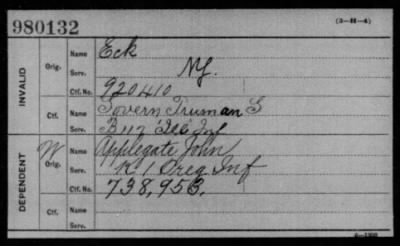 980132
(3-H-4)
INVALID
Orig. Name Eck
Serv. Ny.
Ctf. No. 920410
Ctf. Name Truman G
Serv. B 117 Inf
DEPENDENT
W Orig. Name Applegate John
Serv. K 1 Oreg Inf
Ctf. No. 738,953.
Ctf. Name
Serv.